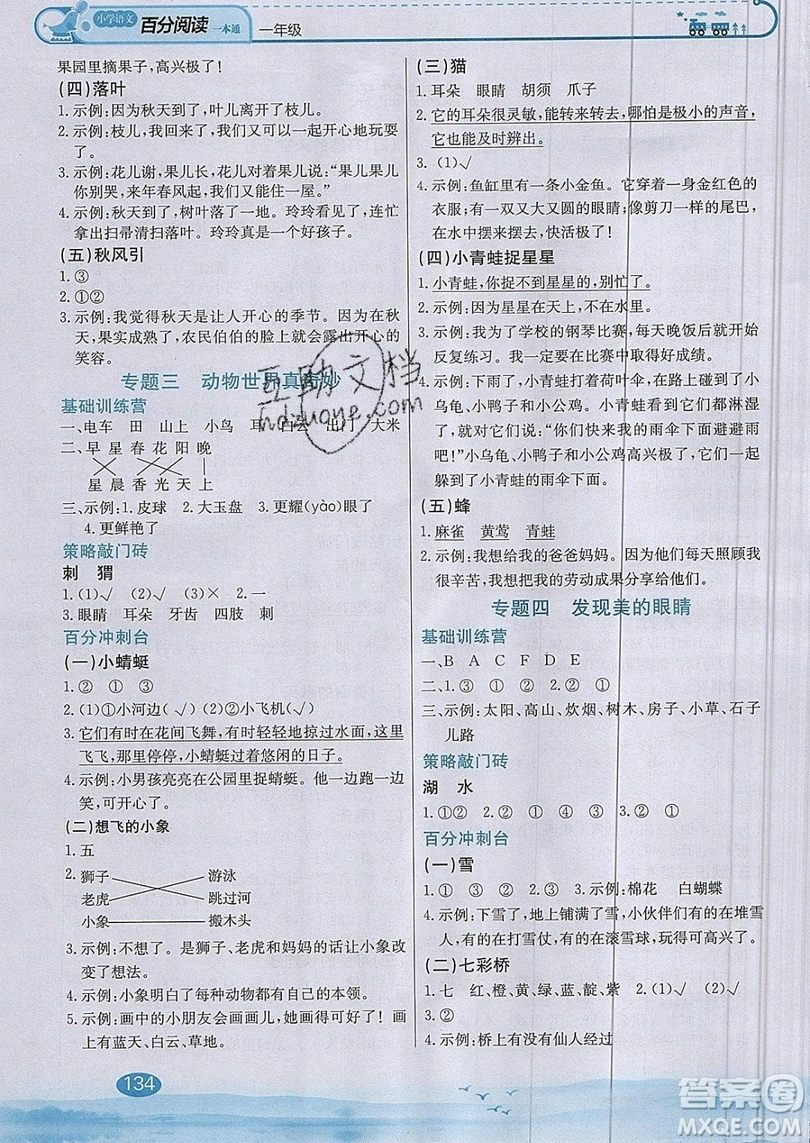 小学语文 百分阅读 一本通 一年级
果园里摘果子，高兴极了！
(四)落叶
1. 示例：因为秋天到了，叶儿离开了枝儿。
2. 示例：枝儿，我和你又可以一起开心地玩耍
了。
3. 示例：花儿谢，果儿长，花儿对果儿说：“果儿果儿
你别哭，来年春风起，我们再相见。”
4. 示例：秋天到了，树叶落了一地。玲玲看见，连忙
拿出扫帚清扫落叶。玲玲真是个好孩子。
(五)秋风引
1. ③
2. ①②
3. 示例：我觉得秋天是让人开心的季节。因为在秋
天，果实成熟了，农民伯伯的脸上就会露出开心的
笑容。
专题三 动物世界真奇妙
基础训练营
一、电车 田 山上 小鸟 耳 白云 出门 大米
二、早 星 春 花 阳 晚
星 晨 香 光 天 上
三、示例：1. 皮球 2. 大玉盘 3. 更耀(yào)眼了
4. 更鲜艳了
策略敲门砖
刺 猬
1. (1)√ (2)√ (3)× 2. 一
3. 眼睛 耳朵 牙齿 四肢 刺
百分冲刺台
(一)小蜻蜓
1. ② ① ③
2. (1)①小河边(√) (2)②小飞机(√)
3. 它们有时在花间飞舞，有时轻轻地掠过水面，这里
飞飞，那里停停，小蜻蜓过着悠闲的日子。
4. 示例：小男孩亮亮在公园里捉蜻蜓。他一边跑一边
笑，可开心了。
(二)想飞的小象
1. 五
2. 狮子 游泳
老虎 跳过河
小象 搬木头
3. 示例：不想了。是狮子、老虎和妈妈的话让小象改
变了想法。
4. 示例：小象明白了每种动物都有自己的本领。
5. 示例：画中的小朋友会画画儿，她画得可好了！画
上有蓝天、白云、草地。
(三)猫
1. 耳朵 眼睛 胡须 爪子
2. 它的耳朵很灵敏，能转来转去，哪怕是极小的声音，
它也能及时辨出。
3. (1)√
4. 示例：鱼缸里有一条小金鱼。它有着一身金红色的
衣服；有一双又大又圆的眼睛；有像剪刀一样的尾巴，
在水中摆来摆去，快活极了！
(四)小青蛙捉星星
1. 小青蛙，你捉不到星星的，别忙了。
2. 示例：因为星星在天上，不在水里。
3. 示例：我为了学校的钢琴比赛，每天放学回家就开始
反复练习。一天比一天弹得好，比赛时取得好成绩。
4. 示例：下雨了，小青蛙打着荷叶伞，在路上碰到了小
乌龟、小鸭子和小公鸡。小青蛙看到它们都淋湿
了，就对它们说：“你们快来我的雨伞下面避避雨
吧！”小乌龟、小鸭子和小公鸡高兴极了，一起
躲到了小青蛙的雨伞下面。
(五)蜂
1. 麻雀 黄莺 青蛙
2. 示例：我想给我的爸爸妈妈。因为他们每天照顾我
很辛苦，我想把我的劳动成果分享给他们。
专题四 发现美的眼睛
基础训练营
一、B A C F D E
二、1. ③ ① ② 2. ② ③ ①
三、示例：太阳、高山、炊烟、树木、房子、小草、石子
儿路
策略敲门砖
湖 水
1. ①② 2. ② ① ④ ③ 3. ② ①
百分冲刺台
(一)雪
1. ② ① ③ 2. ③ 3. 示例：棉花 白蝴蝶
4. 示例：下雪了，地上铺满了雪，小伙伴们有的在堆雪
人，有的在打雪仗，有的在滚雪球，玩得可高兴了。
(二)七彩桥
1. 七 红、橙、黄、绿、蓝、靛、紫 2. (1)√ (2)√
3. ②
4. 示例：桥上有没有仙人经过
134
互助文档
hdzuoye.com
答案圈
MXQE.COM